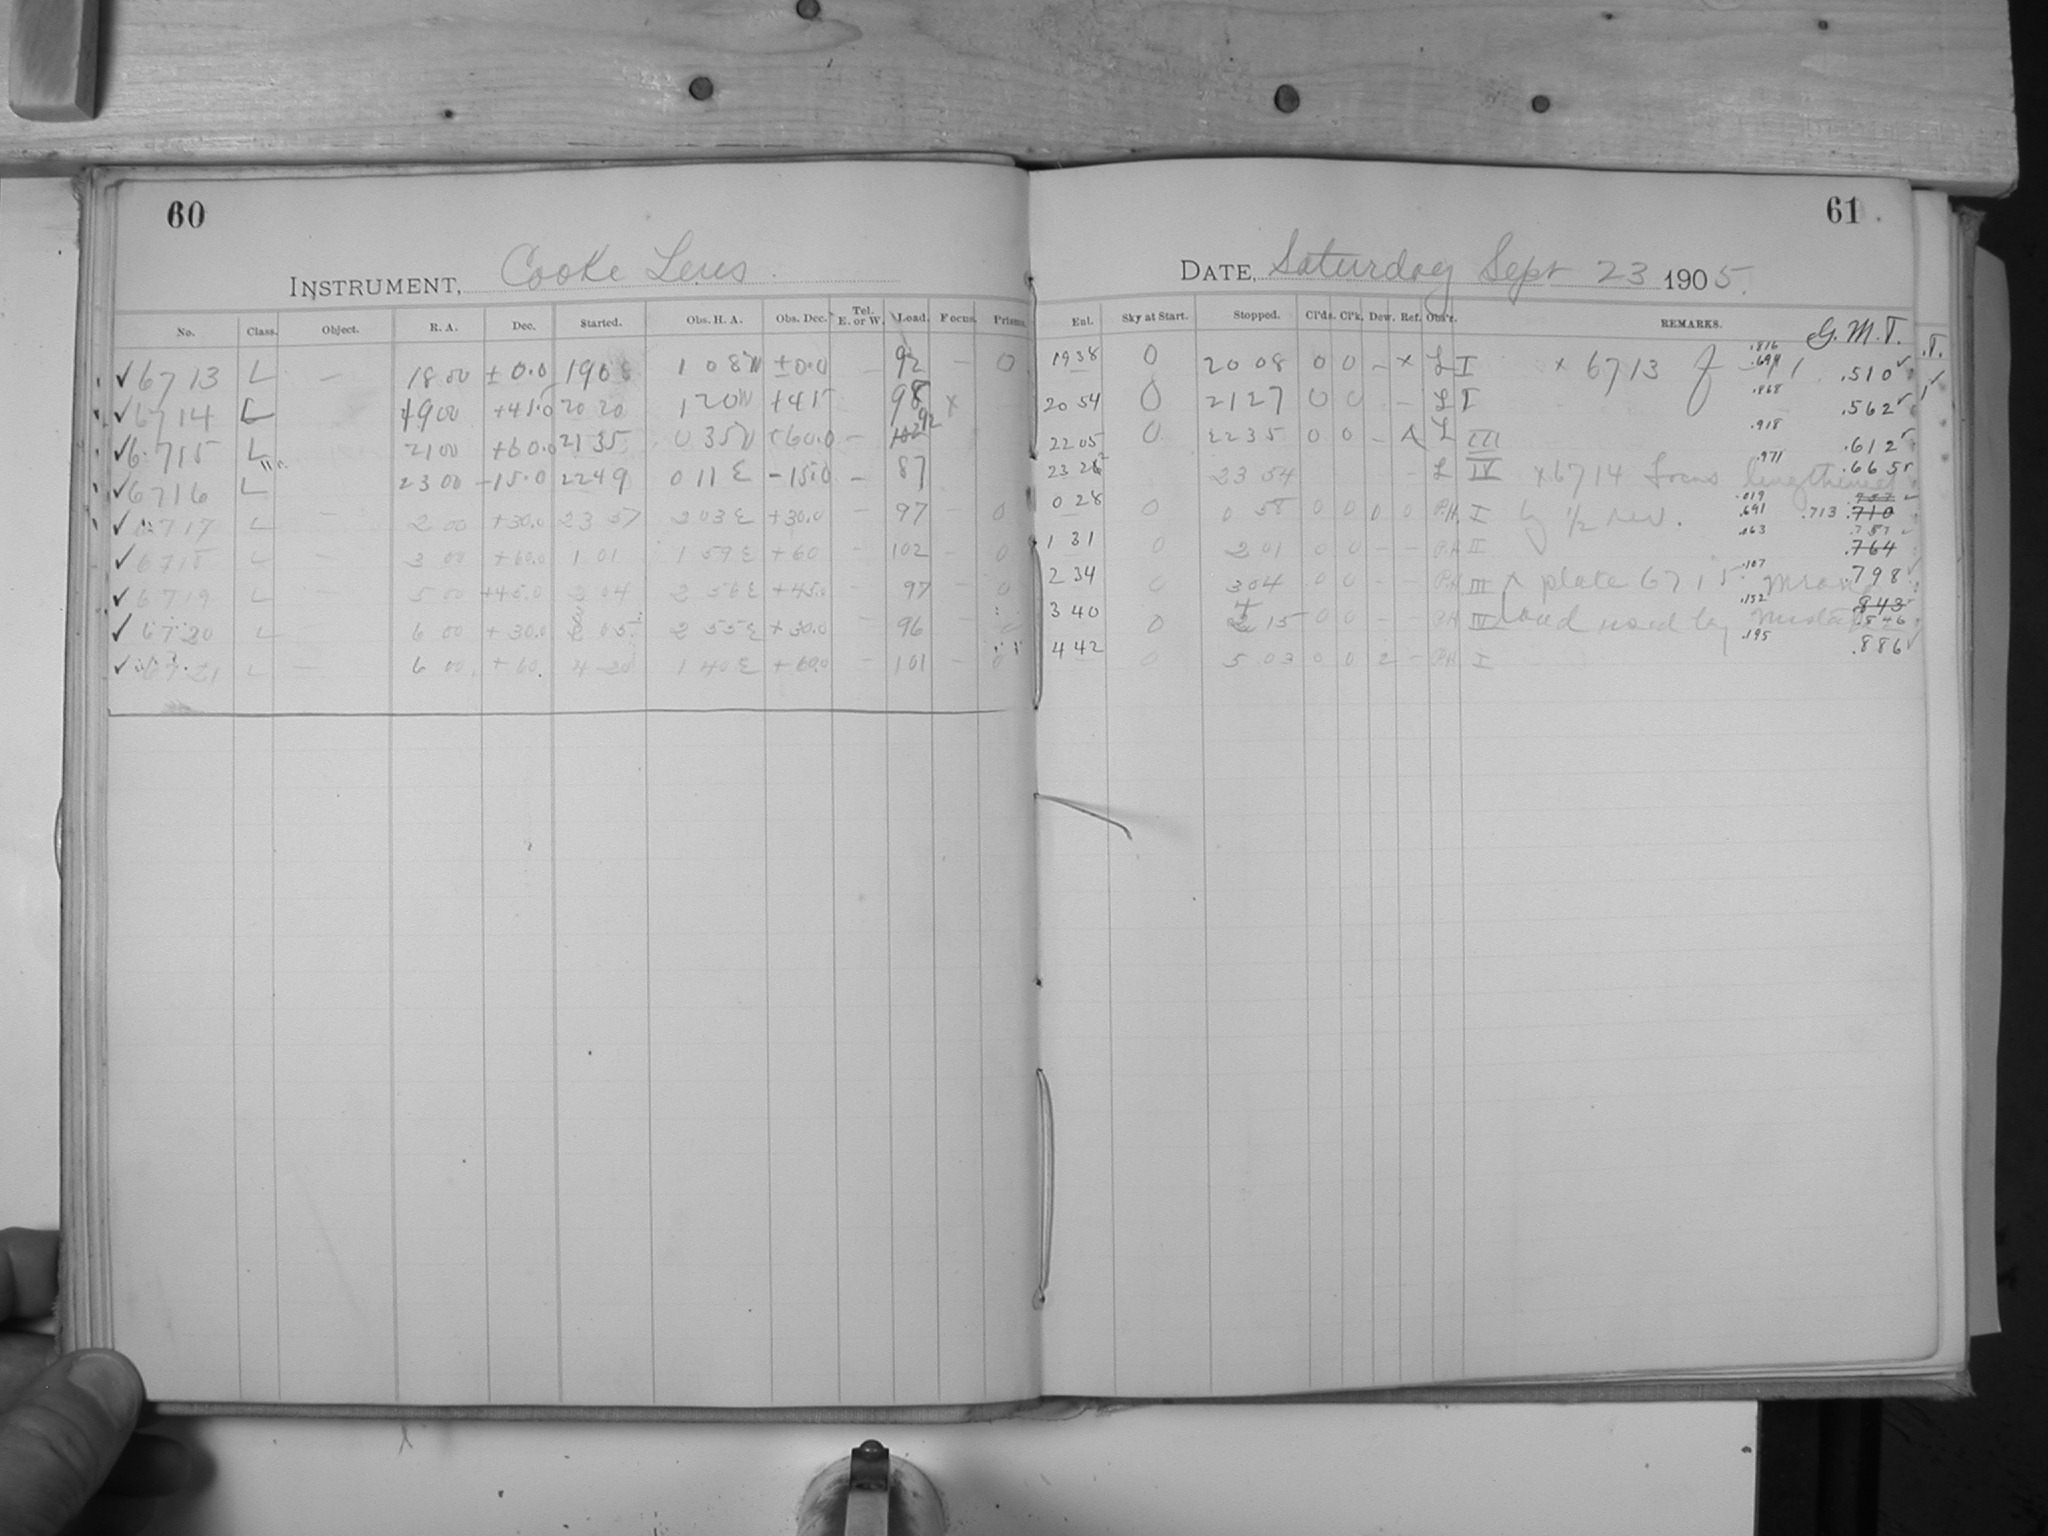 60
INSTRUMENT, Cooke Lens.
No. Class. Object. R. A. Dec. Started. Obs. H. A. Obs. Dec. Tel. E. or W. Load. Focus. Prisms.
✓ 6713 L — 18 00 ±0.0 190 1 08 W ±0.0 — 92 — 0
✓ 6714 L 1900 +45.0 20 20 1 20 W +45 98 x
✓ 6715 L 2100 +60.0 21 35 0 35 W +60.0 — 102 92
✓ 6716 L 23 00 -15.0 2249 0 11 E -15.0 — 87
✓ 6717 L — 2 00 +30.0 23 57 2 03 E +30.0 — 97 — 0
✓ 6718 L — 3 00 +60.0 1 01 1 59 E +60 — 102 — 0
✓ 6719 L — 5 00 +45.0 2 04 2 56 E +45.0 — 97 — 0
✓ 6720 L — 6 00 +30.0 3 05 2 55 E +30.0 — 96 — 0
✓ 6721 L — 6 00 +60. 4 20 1 40 E +60.0 — 101 — 0
61
DATE, Saturday Sept 23 1905.
Ent. Sky at Start. Stopped. Cl'ds. Cl'k. Dew. Ref. Obs'r. REMARKS. G.M.T.
19 38 0 20 08 0 0 — x L I x 6713 .816 .510 ✓
20 54 0 21 27 0 0 — L I .868 .562 ✓
22 05 0 22 35 0 0 — L III .918 .612 ✓
23 23 54 — L IV x 6714 Focus lengthened .971 .665 ✓
0 28 0 0 58 0 0 0 0 PH I by 1/2 rev. .019 .691 .713 .710
1 31 0 2 01 0 0 — — PH II .063 .757 ✓ .764
2 34 0 3 04 0 0 — — PH III x plate 6715 wrong .107 .798 ✓
3 40 0 4 15 0 0 — — PH IV load used by mistake .152 .843 .846
4 42 0 5 03 0 0 2 — PH I .195 .886 ✓